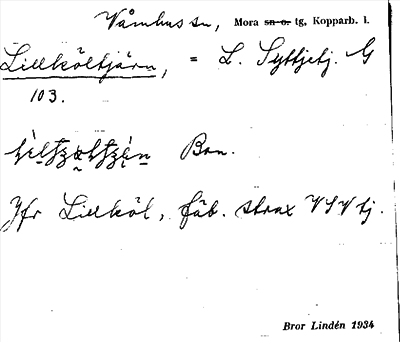 Våmhus sn, Mora sn o. tg, Kopparb. l.
Lillköltjärn, = L. Syttjetj. G
103.
Bon.
Jfr Lillköl, fäb. strax VSV tj.
Bror Lindén 1934